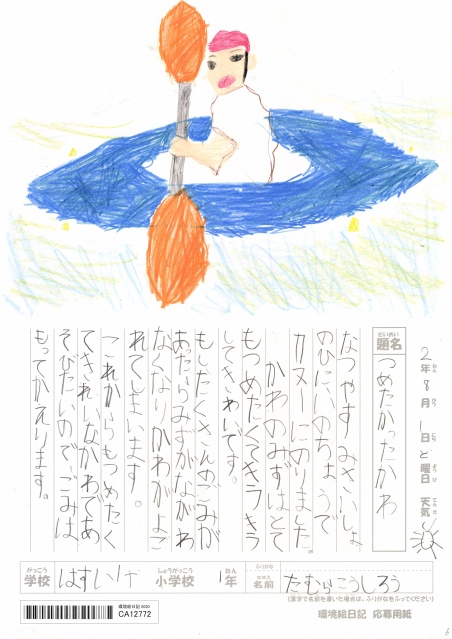 2年8月1日ど曜日 天気
ねん がつ にち ようび てんき
だいめい
題名 つめたかったかわ
なつやすみさいしょ
のひにいのちょうで
カヌーにのりました
かわのみずはとて
もつめたくてキラキラ
してきれいです。
もしたくさんのごみが
あったらみずがながれ
なくなりかわがよご
れてしまいます。
これからもつめたく
てきれいなかわであ
そびたいので、ごみは
もってかえります。
がっこう しょうがっこう ねん ふりがな
学校 はすいけ 小学校 1年 名前 たむらこうしろう
(漢字で名前を書いた場合は、ふりがなをふってください)
環境絵日記 2020
CA12772
環境絵日記 応募用紙